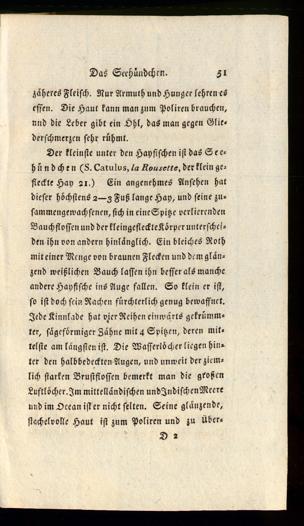 Das Seehündchen. 51
zäheres Fleisch. Nur Armuth und Hunger lehren es
essen. Die Haut kann man zum Poliren brauchen,
und die Leber gibt ein Öhl, das man gegen Glie-
derschmerzen sehr rühmt.
Der kleinste unter den Hayfischen ist das See-
hündchen (S. Catulus, la Rousette, der klein ge-
fleckte Hay 21.) Ein angenehmes Ansehen hat
dieser höchstens 2—3 Fuß lange Hay, und seine zu-
sammengewachsenen, sich in eine Spitze verlierenden
Bauchflossen und der kleingefleckte Körper unterschei-
den ihn von andern hinlänglich. Ein bleiches Roth
mit einer Menge von braunen Flecken und dem glän-
zend weißlichen Bauch lassen ihn besser als manche
andere Hayfische ins Auge fallen. So klein er ist,
so ist doch sein Rachen fürchterlich genug bewaffnet.
Jede Kinnlade hat vier Reihen einwärts gekrümm-
ter, sägeförmiger Zähne mit 4 Spitzen, deren mit-
telste am längsten ist. Die Wasserlöcher liegen hin-
ter den halbbedeckten Augen, und unweit der ziem-
lich starken Brustflossen bemerkt man die großen
Luftlöcher. Im mittelländischen und Indischen Meere
und im Ocean ist er nicht selten. Seine glänzende,
stachelvolle Haut ist zum Poliren und zu Über-
D 2